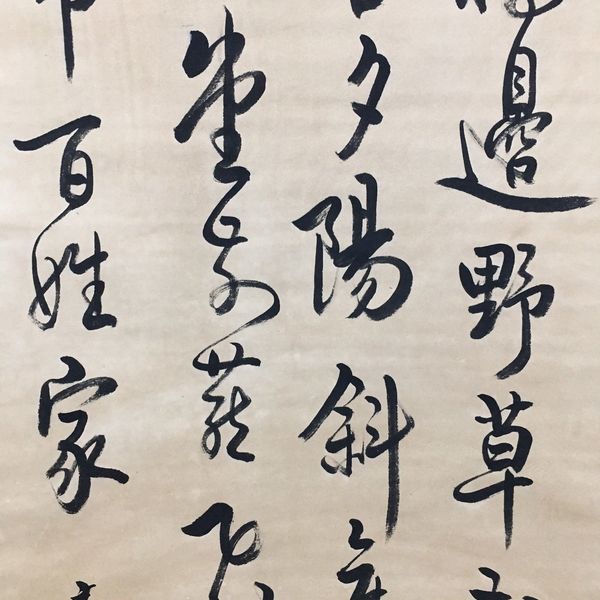 邊野草
夕陽斜
堂前燕飛
百姓家